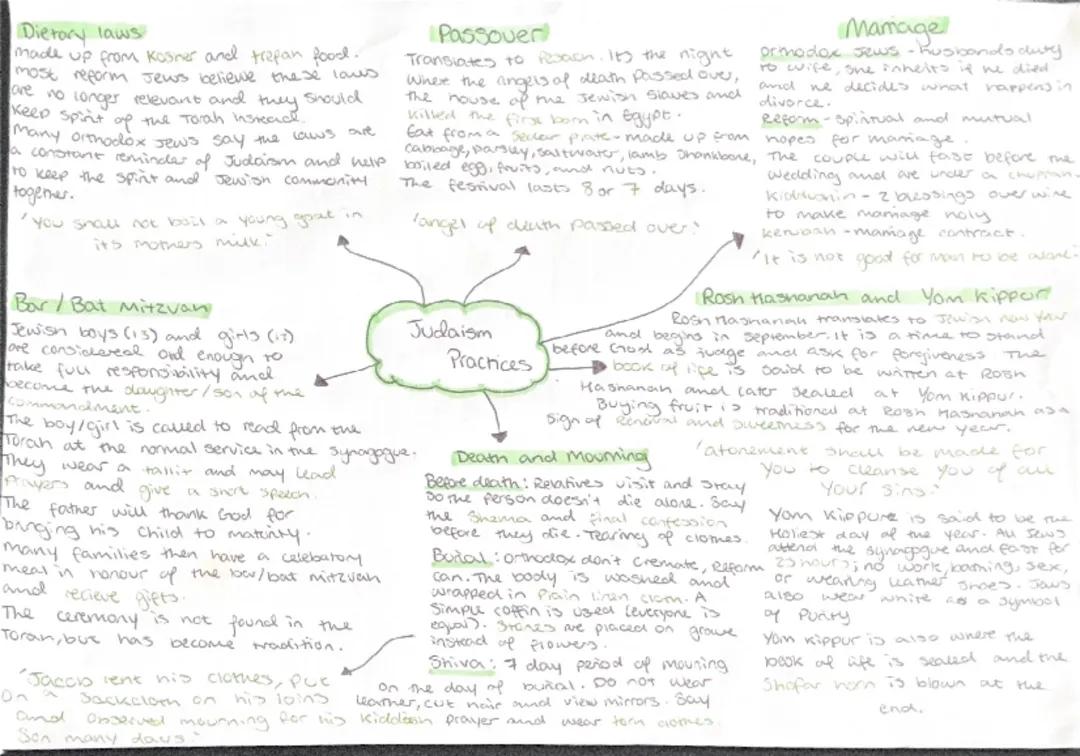 Dietary laws
made up from Kosher and trefah food.
most reform Jews believe these laws
are no longer relevant and they should
keep spirit of the Torah instead.
Many orthodox Jews say the laws are
a constant reminder of Judaism and help
to keep the spirit and Jewish community
together.
'You shall not boil a young goat in
its mothers milk.'
Passover
Translates to Pesach. Its the night
where the angels of death passed over,
the house of the Jewish slaves and
killed the first born in Egypt.
Eat from a Sedar plate - made up from
cabbage, parsley, saltwater, lamb shankbone,
boiled egg, fruits, and nuts.
The festival lasts 8 or 7 days.
'angel of death passed over.'
Marriage
orthodox Jews - husbands duty
to wife, she inherits if he died
and he decides what happens in
divorce.
Reform - spiritual and mutual
hopes for marriage.
The couple will fast before the
wedding and are under a chuppah.
Kiddushin - 2 blessings over wine
to make marriage holy
Ketubah - marriage contract.
'It is not good for man to be alone.'
Judaism
Practices
Bar / Bat Mitzvah
Jewish boys (13) and girls (12)
are considered old enough to
take full responsibility and
become the daughter/son of the
commandment.
The boy/girl is called to read from the
Torah at the normal service in the synagogue.
They wear a tallit and may lead
prayers and give a short speech.
The father will thank God for
bringing his child to maturity.
many families then have a celebatory
meal in honour of the bar/bat mitzvah
and recieve gifts.
The ceremony is not found in the
Torah, but has become tradition.
Rosh Hashanah and Yom Kippur
Rosh Hashanah translates to Jewish new year
and begins in September. It is a time to stand
before God as judge and ask for forgiveness. The
book of life is said to be written at Rosh
Hashanah and later sealed at Yom Kippur.
Buying fruit is traditional at Rosh Hashanah as a
sign of renewal and sweetness for the new year.
'atonement shall be made for
you to cleanse you of all
your sins.'
Yom Kippure is said to be the
Holiest day of the year. All Jews
attend the synagogue and fast for
25 hours; no work, bathing, sex,
or wearing leather shoes. Jews
also wear white as a symbol
of Purity
Yom Kippur is also where the
book of life is sealed and the
Shofar horn is blown at the
end.
Death and Mourning
Before death: Relatives visit and stay
so the person doesn't die alone. Say
the Shema and final confession
before they die. Tearing of clothes.
Burial: orthodox don't cremate, Reform
can. The body is washed and
wrapped in plain linen cloth. A
simple coffin is used (everyone is
equal). Stones are placed on grave
instead of flowers.
Shiva: 7 day period of mouning
on the day of burial. Do not wear
leather, cut hair and view mirrors. Say
Kiddish prayer and wear torn clothes.
'Jacob rent his clothes, put
on a sackcloth on his loins
and observed mourning for his
son many days.'